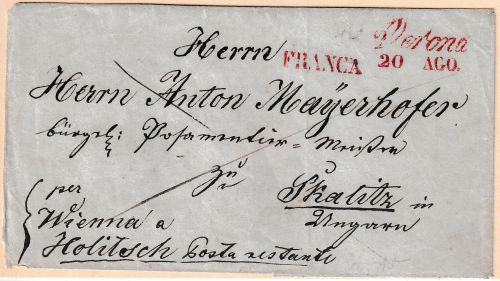 Verona
20 AGO.
FRANCA
Herrn
Herrn Anton Mayerhofer
bürgel: Posamentier=Meister
zu
Skalitz in
Ungarn
per
Wienna a
Holitsch Posta restante